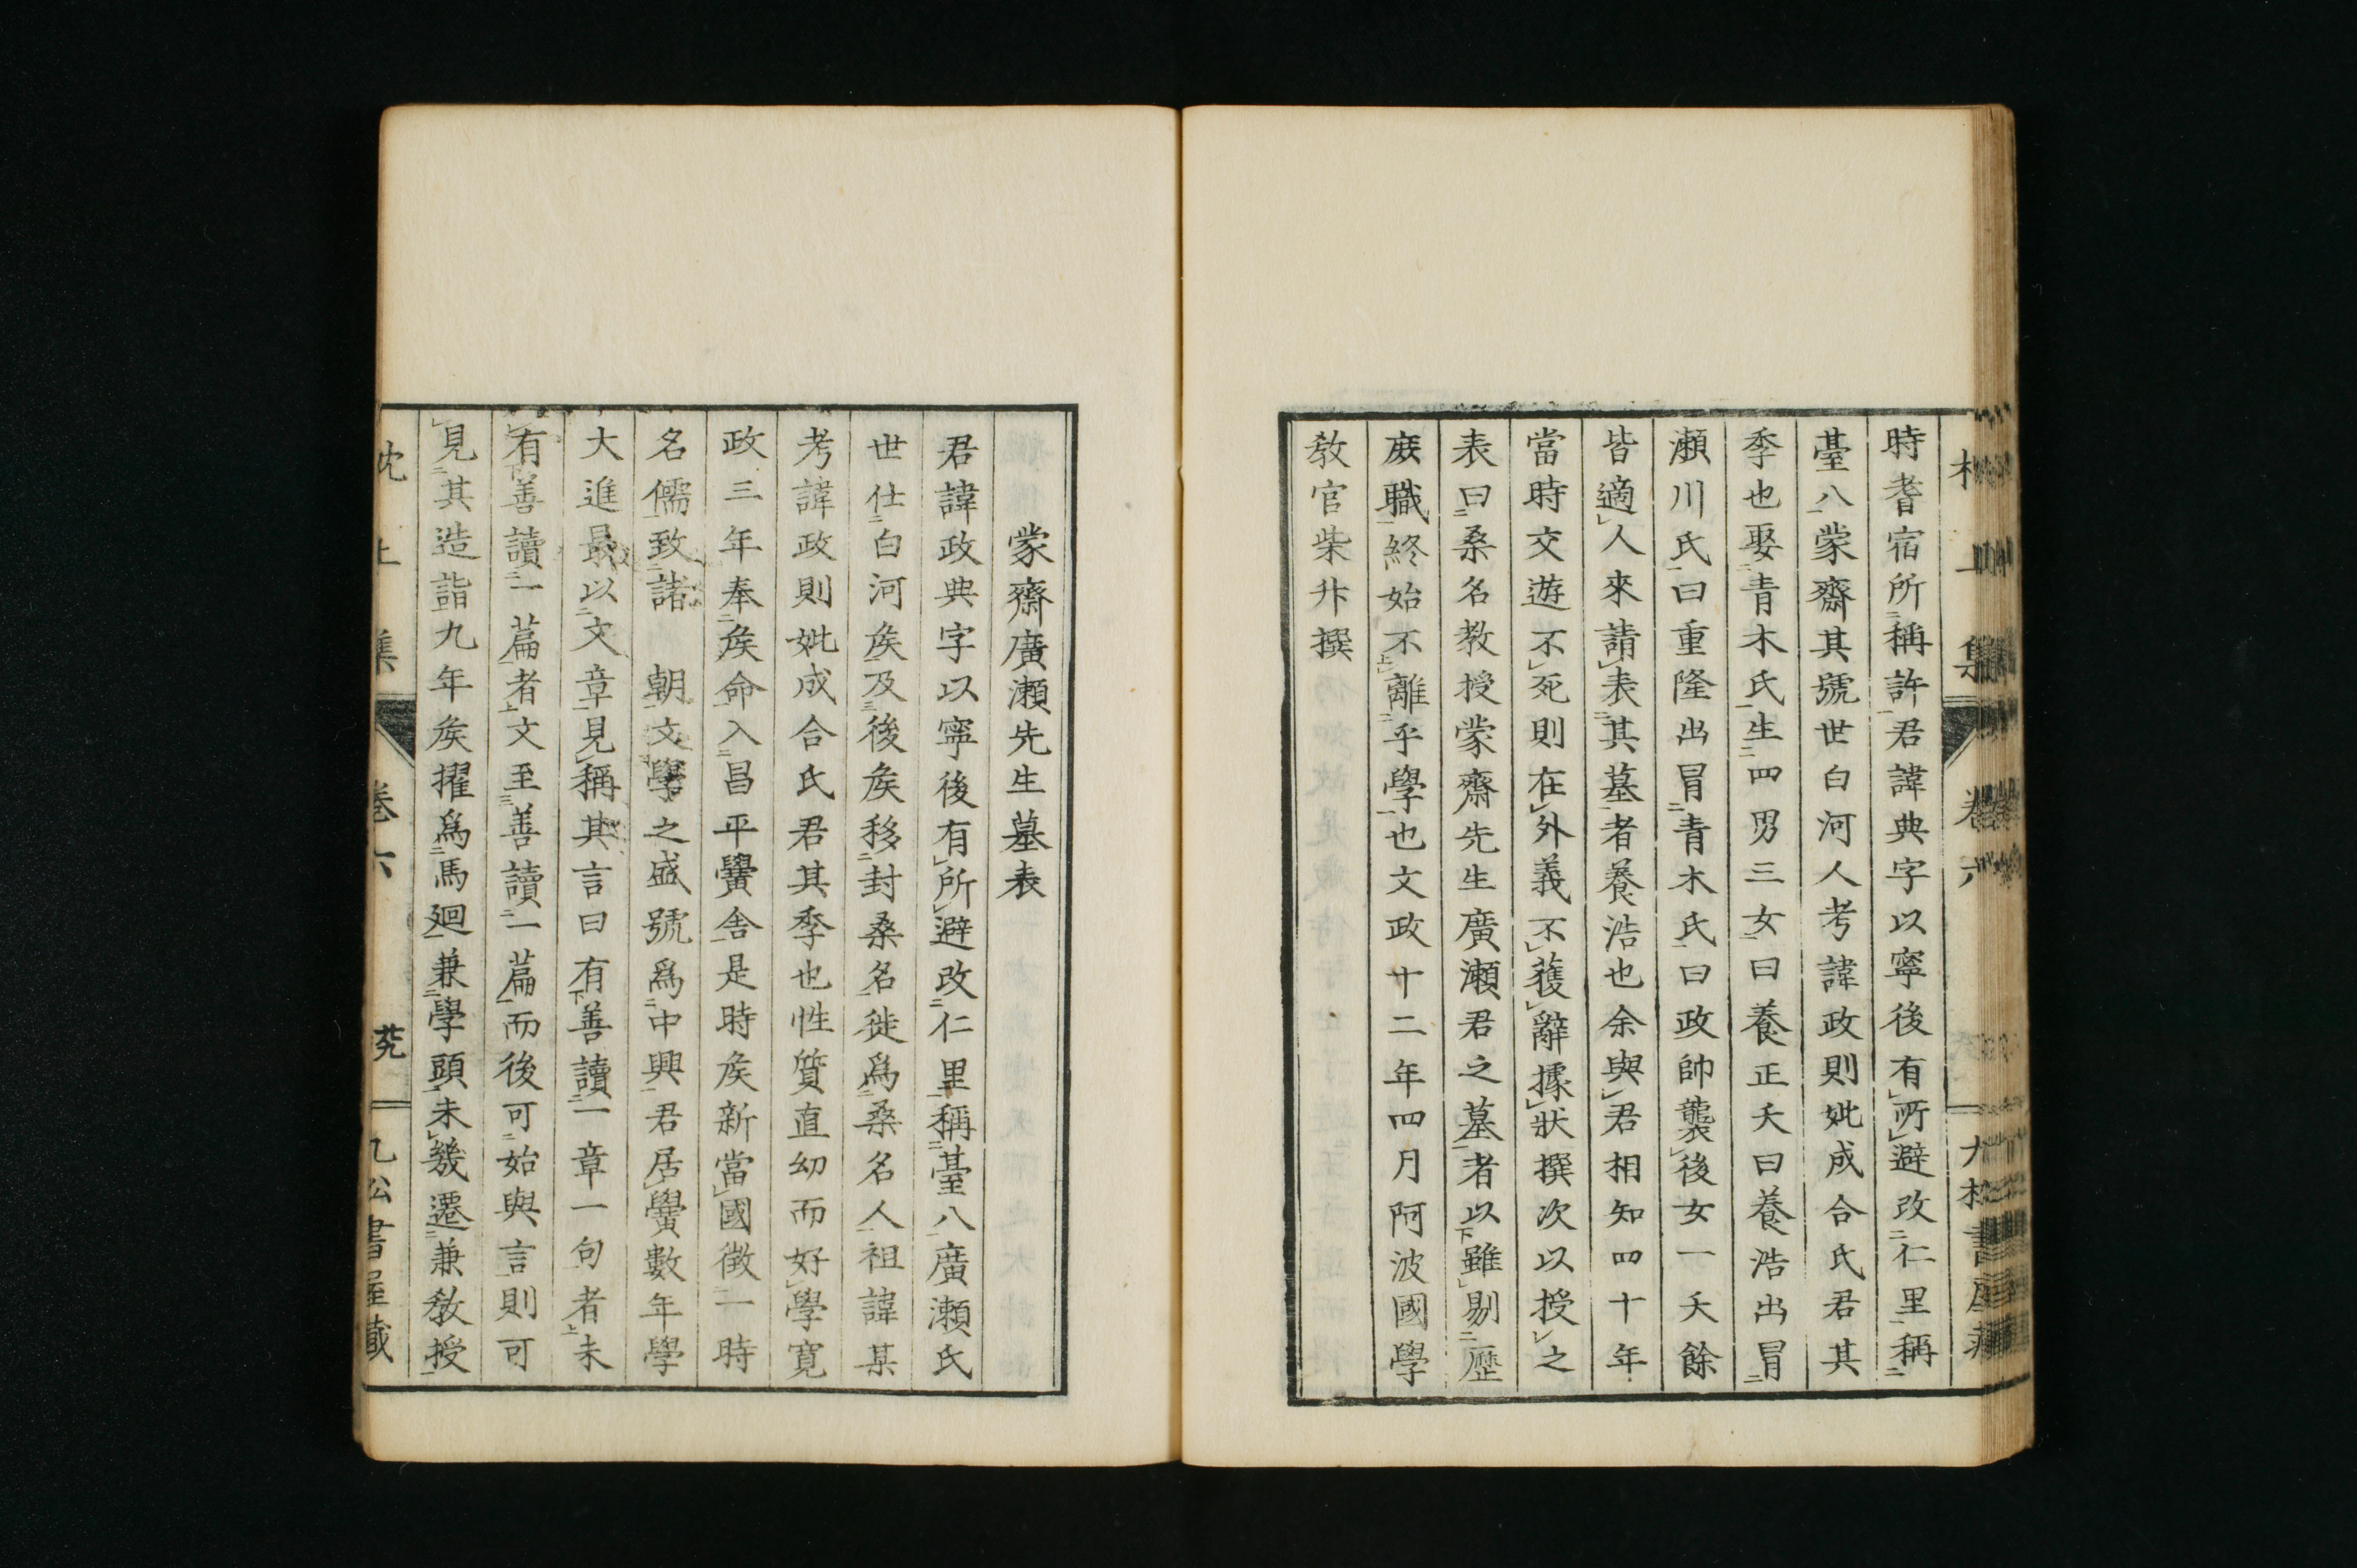 時耆宿所稱許君諱典字以寧後有所避改仁里稱
臺八蒙齋其號世白河人考諱政則妣成合氏君其
季也娶青木氏生四男三女曰養正夭曰養浩出冒
瀬川氏曰重隆出冒青木氏曰政帥襲後女一夭餘
皆適人來請表其墓者養浩也余與君相知四十年
當時交遊不死則在外義不獲辭據狀撰次以授之
表曰桑名教授蒙齋先生廣瀬君之墓者以雖剔歷
庶職終始不離乎學也文政十二年四月阿波國學
教官柴升撰
蒙齋廣瀬先生墓表
君諱政典字以寧後有所避改仁里稱臺八廣瀬氏
世仕白河矦及後矦移封桑名徙爲桑名人祖諱某
考諱政則妣成合氏君其季也性質直幼而好學寛
政三年奉矦命入昌平黌舎是時矦新當國徴一時
名儒致諸 朝文學之盛號爲中興君居黌數年學
大進最以文章見稱其言曰有善讀一章一句者未
有善讀一篇者文至善讀一篇而後可始與言則可
見其造詣九年矦擢爲馬廻兼學頭未幾遷兼教授
上集 卷六 九松書屋藏